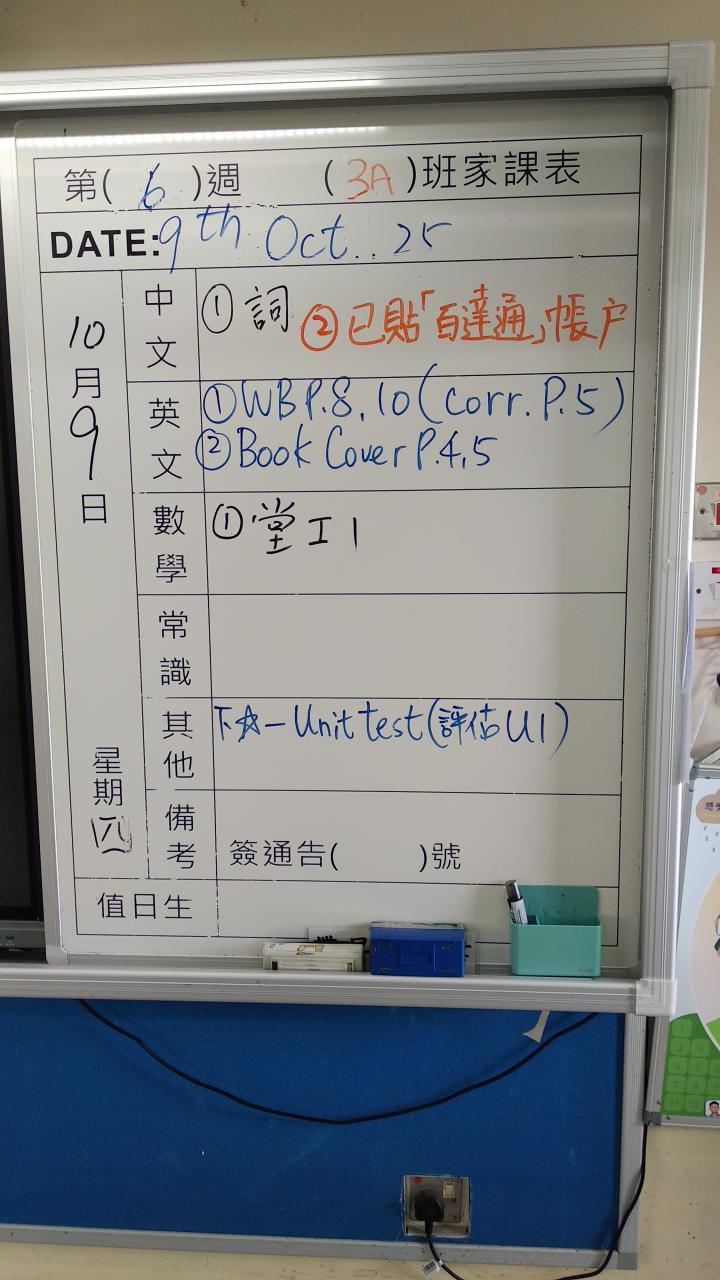 第( 6 )週 ( 3A )班家課表
DATE: 9th Oct. 25
10月9日
星期四
中文 ①詞 ②已貼「百達通」帳户
英文 ①WB P.8, 10 (corr. P.5)
②Book Cover P.4,5
數學 ①堂工1
常識
其他 下☆一 Unit test (評估U1)
備考 簽通告( )號
值日生